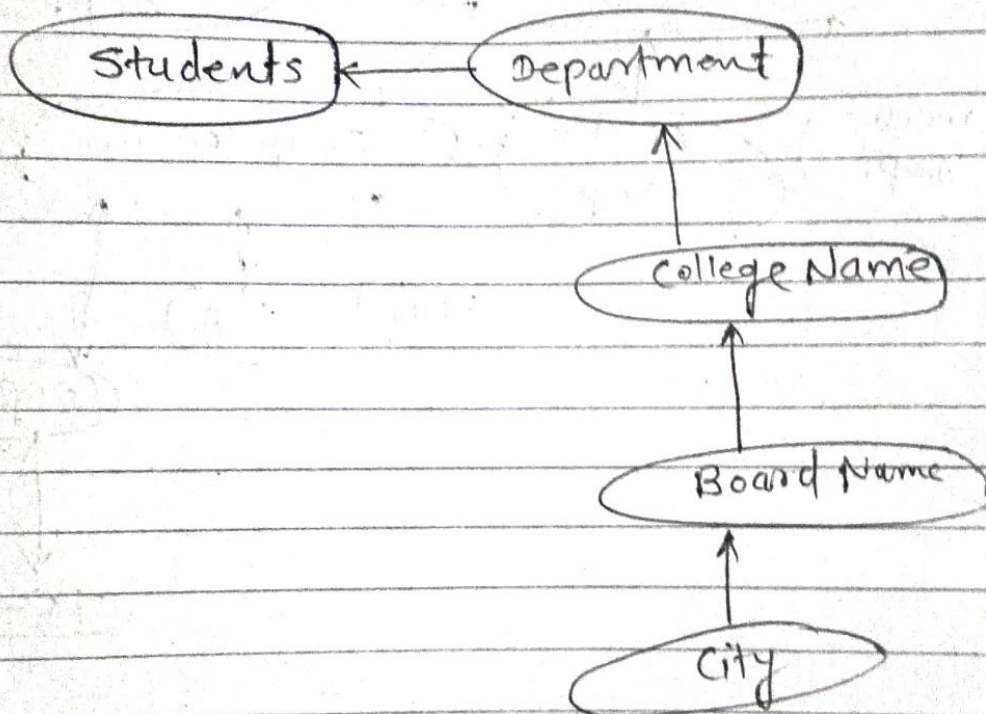 Students Department
College Name
Board Name
City